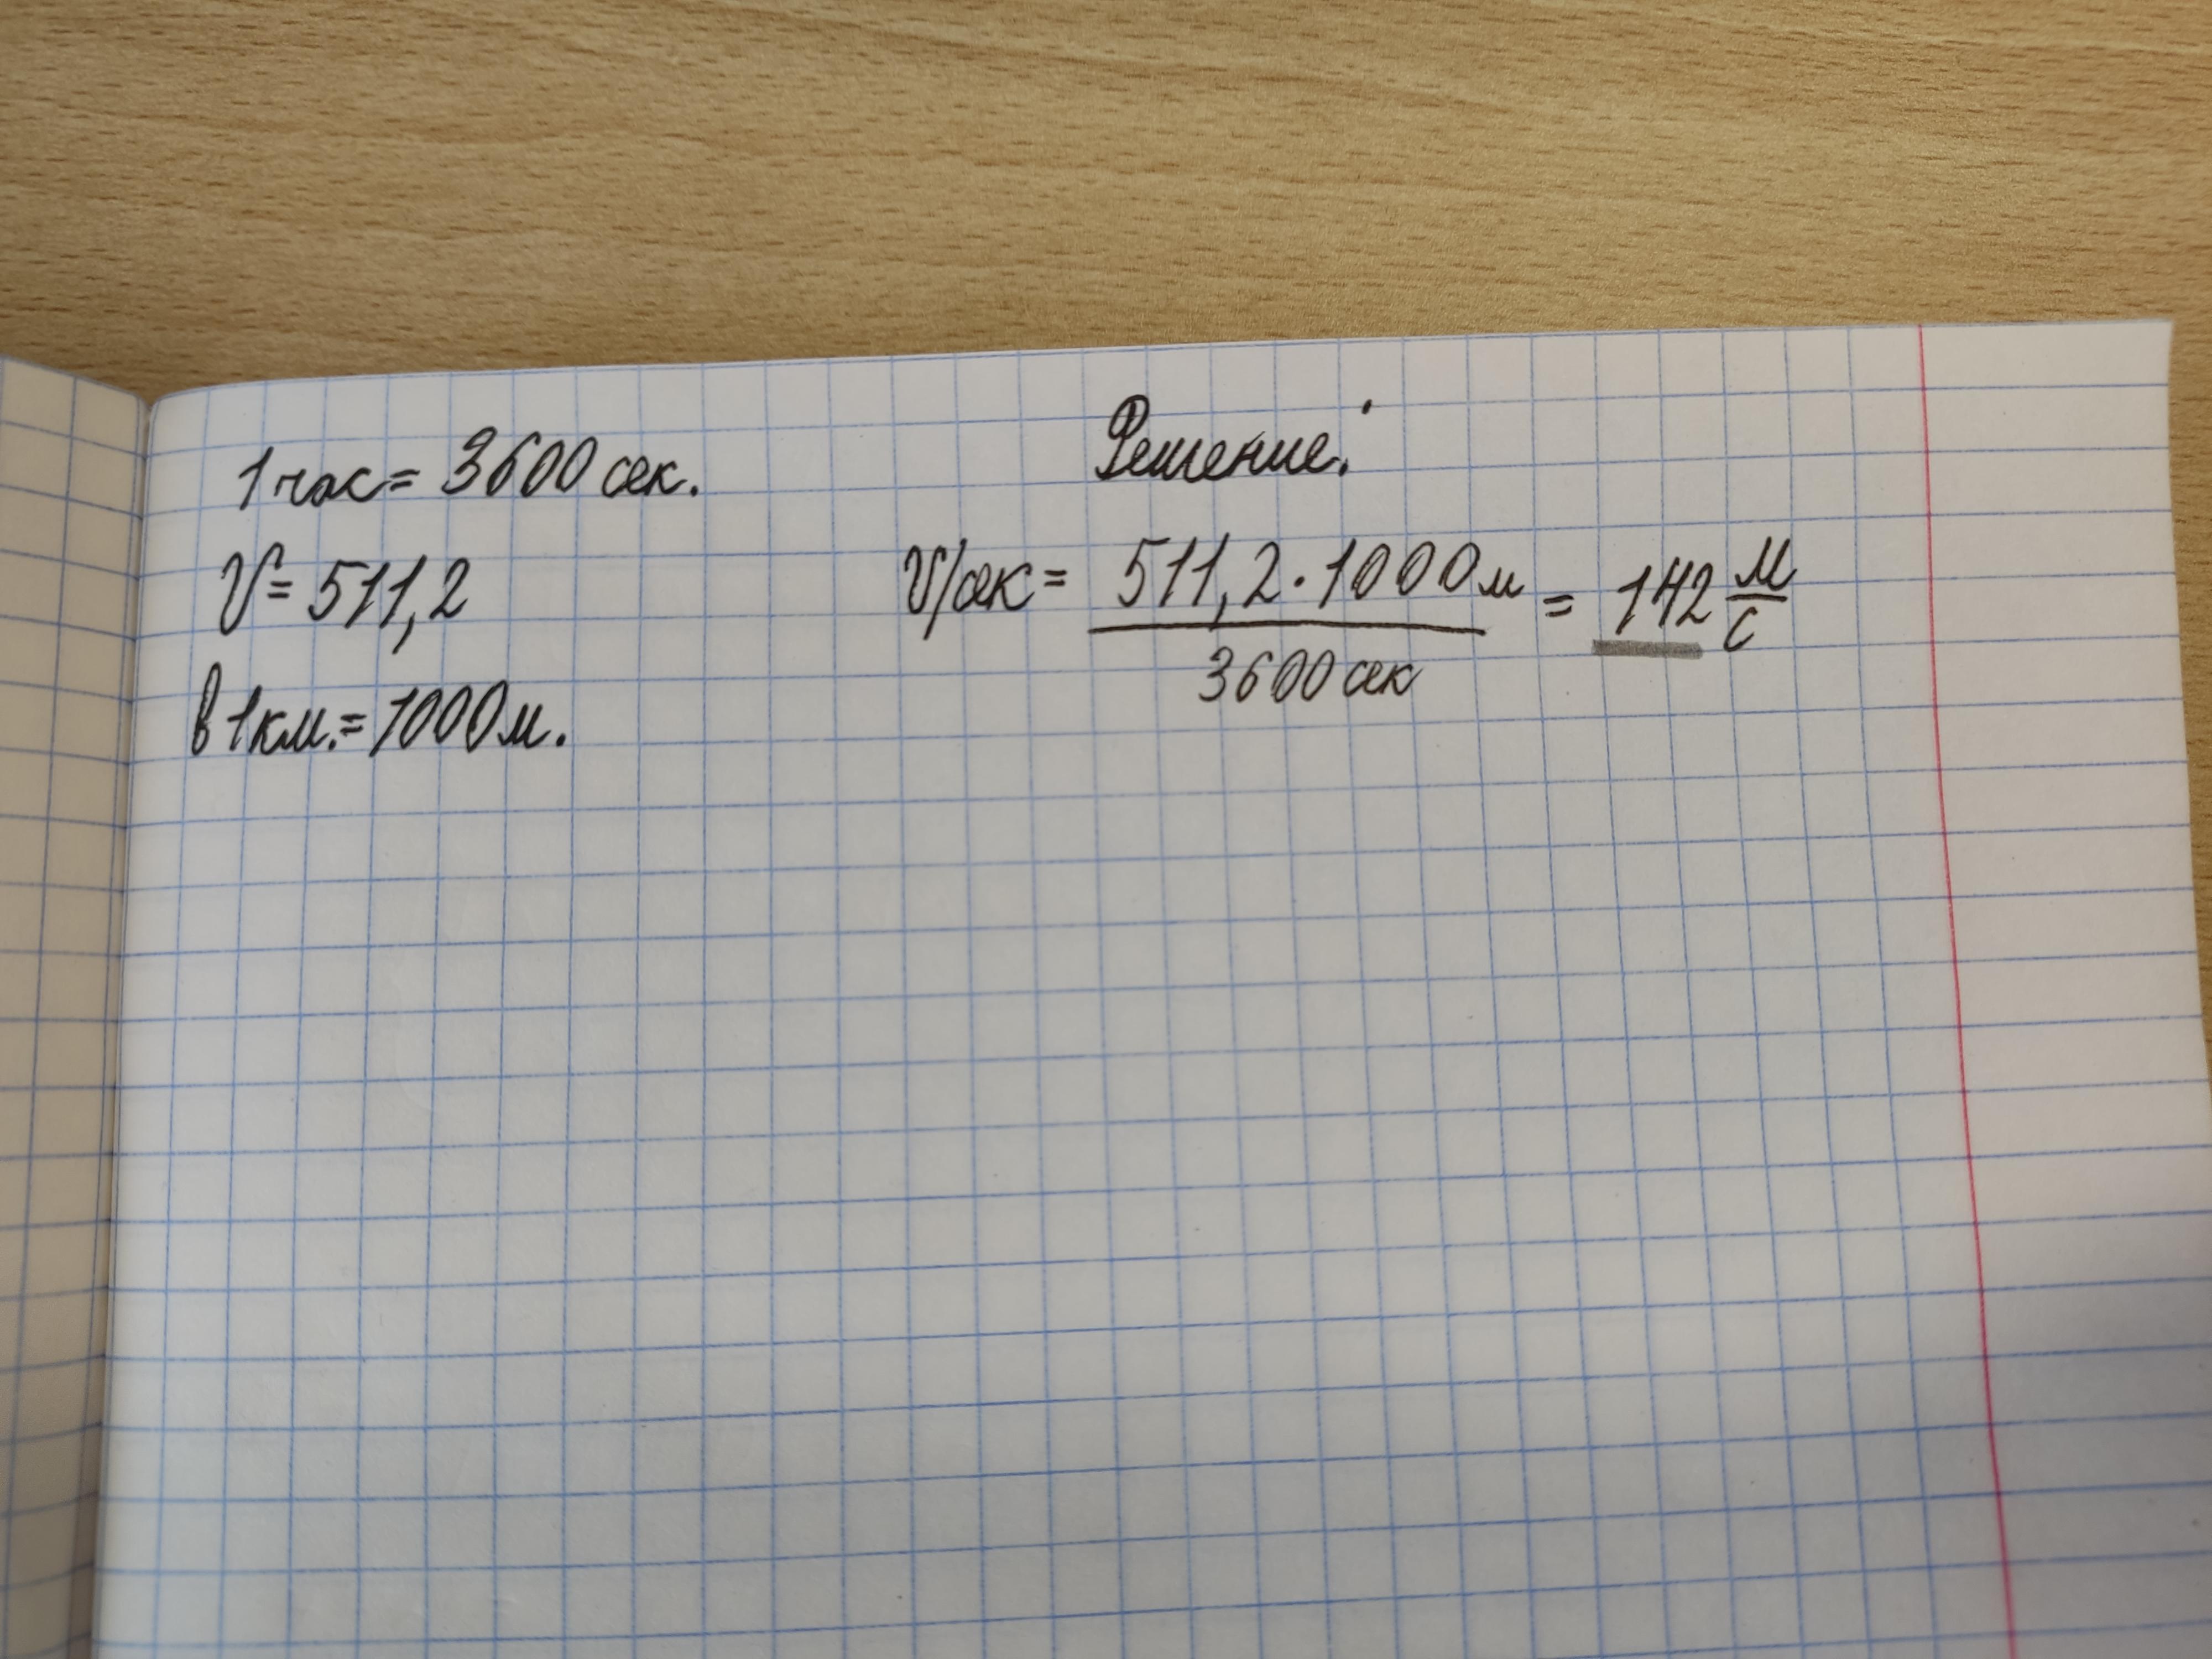 1 час = 3600 сек.
V = 511,2
в 1 км. = 1000 м.
Решение:
V/сек = 511,2 · 1000 м / 3600 сек = 142 м/с